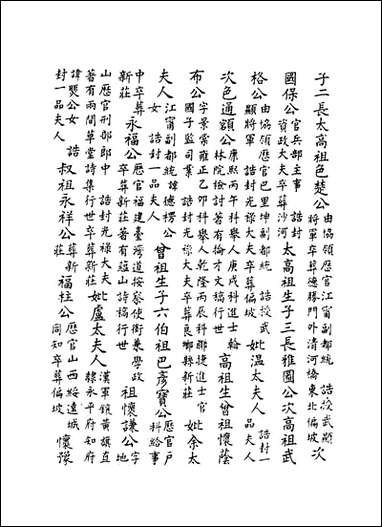 子二長太高祖色楚公由協領歷官江甯副都統 誥授武顯將軍卒葬德勝門外清河橋東北偏坡次
國保公官兵部主事 誥封資政大夫卒葬沙河太高祖生子三長雅圖公次高祖武
格公由協領歷官巴里坤副都統 誥授武顯將軍 誥封光祿大夫卒葬偏坡妣温太夫人誥封一品夫人
次色通額公康熙丙午科舉人庚戌科進士翰林院檢討著有掄才文稿行世高祖生曾祖懷蔭
布公字景棠雍正乙卯科舉人乾隆丙辰科聯捷進士官國子監司業 誥封光祿大夫卒葬良鄉縣新莊妣余太
夫人江甯副都統諱德楞公女 誥封一品夫人曾祖生子六伯祖巴彥寶公歷官戶科給事
中卒葬新莊永福公歷官福建臺灣道按察使銜兼學政卒葬新莊著有蕴山詩稿行世祖懷謙公字地
山歷官刑部郎中 誥封光祿大夫著有兩間草堂詩集行世卒葬新莊妣盧太夫人漢軍鑲黃旗直隸永平府知府
諱焈公女 誥封一品夫人叔祖永祥公卒葬新莊福柱公歷官山西綏遠城同知卒葬偏坡懷豫